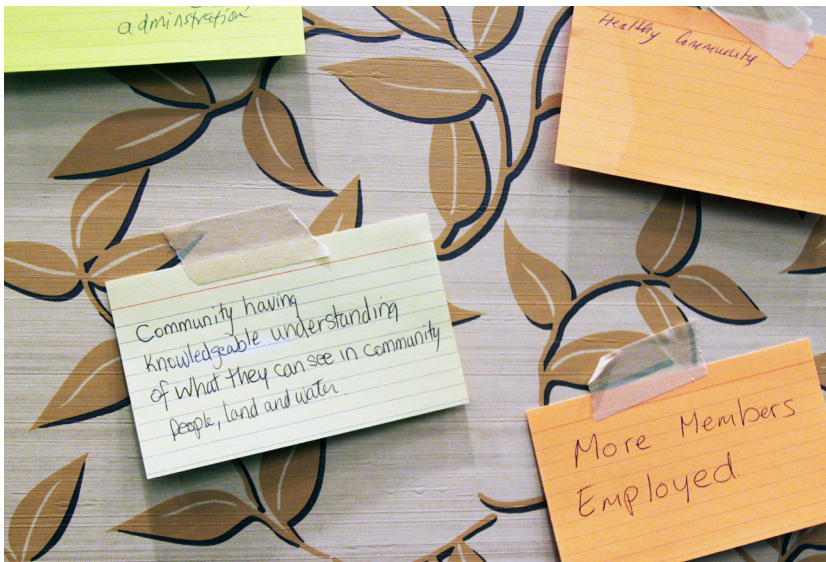 adminstration
Healthy Community
Community having
knowledgeable understanding
of what they can see in community
people, land and water.
More Members
Employed.